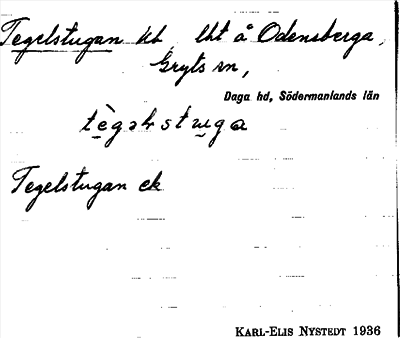 Tegelstugan ht lht å Odensberga,
Gryts sn,
Daga hd, Södermanlands län
Tegelstugan ek
KARL-ELIS NYSTEDT 1936